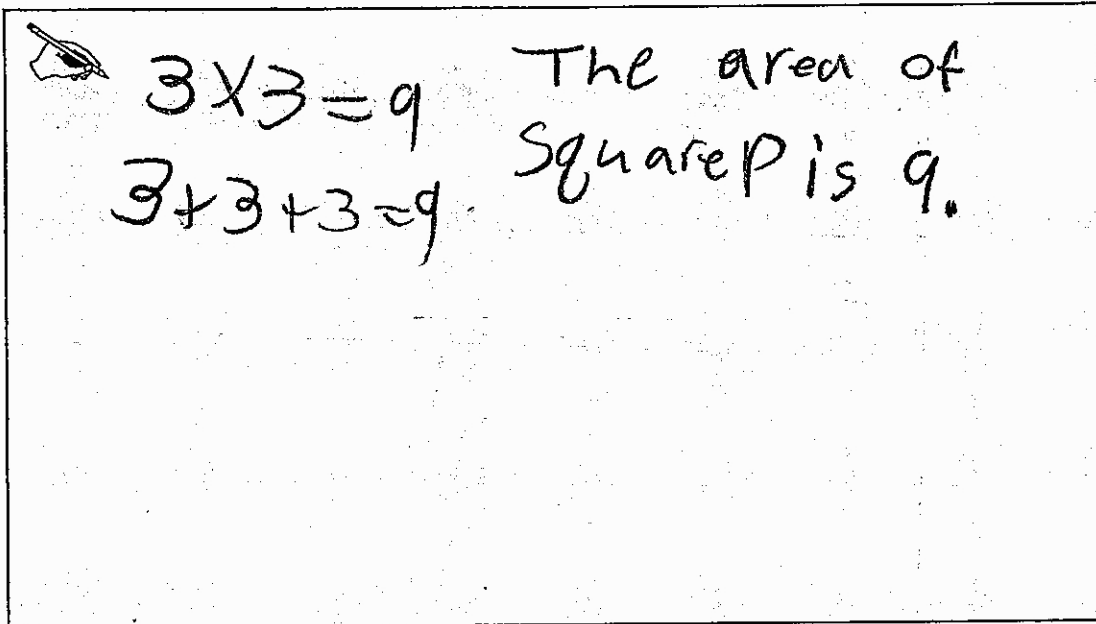 3×3=9
3+3+3=9
The area of
square P is 9.